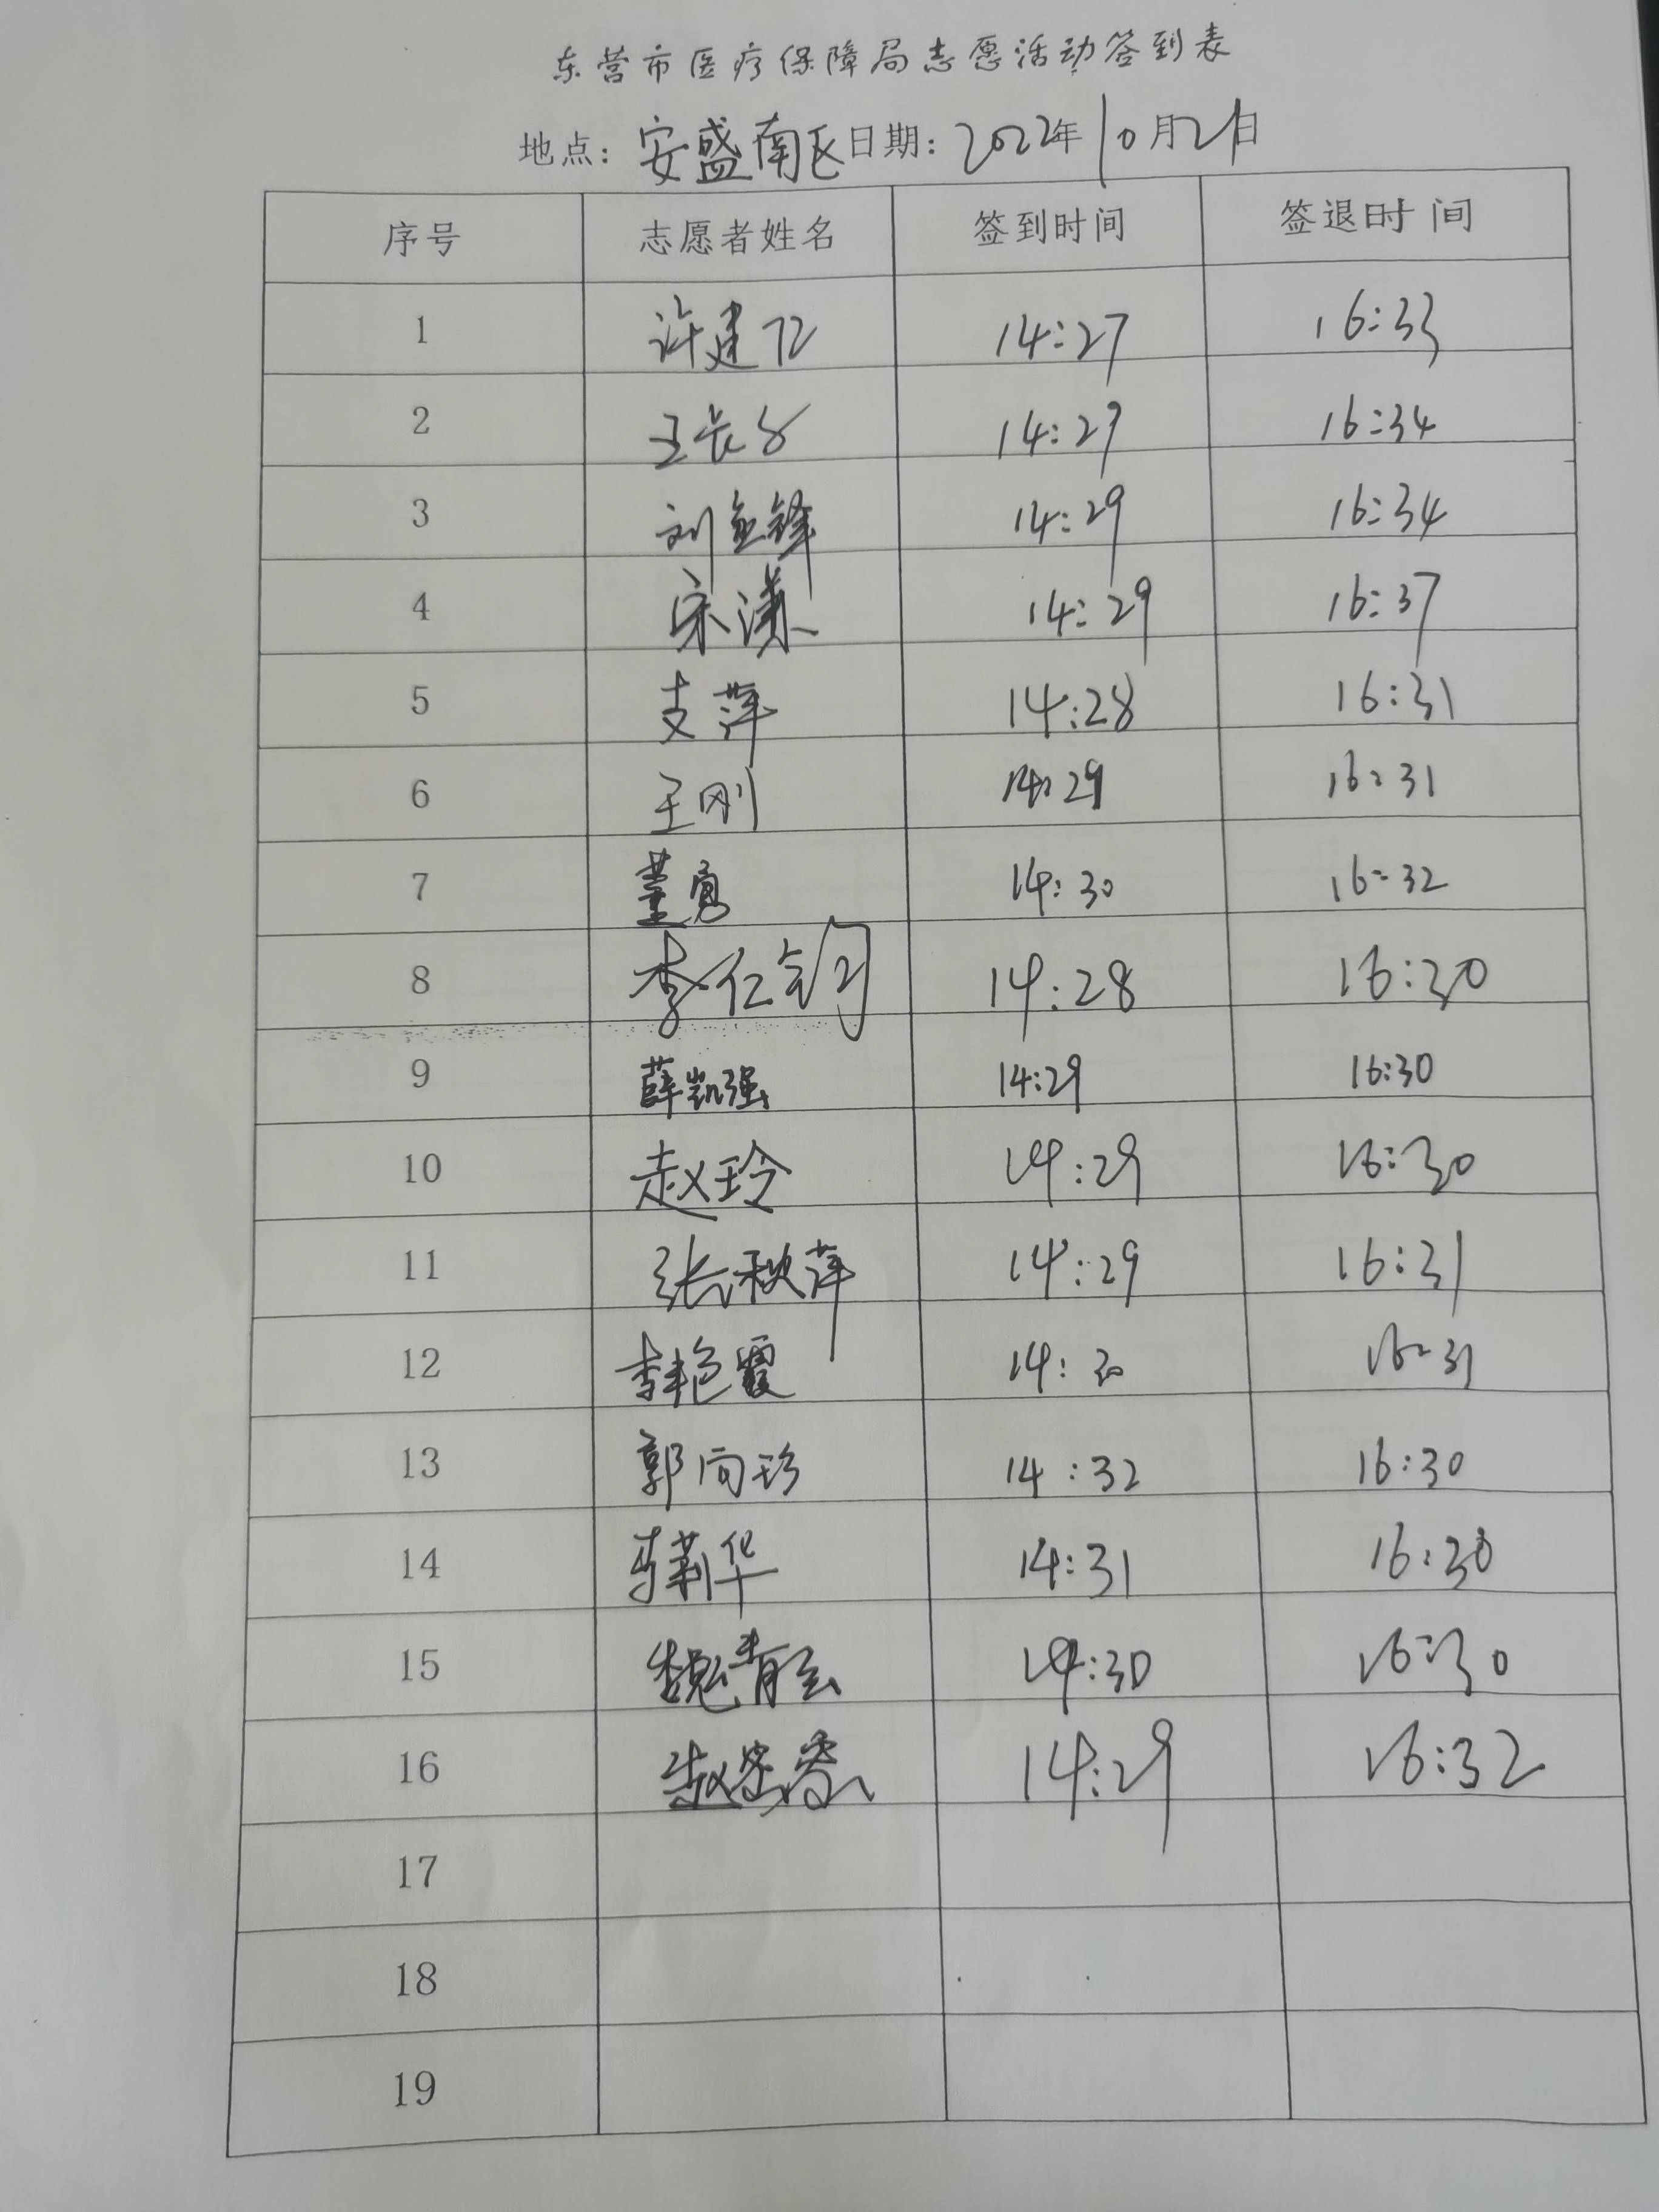 东营市医疗保障局志愿活动签到表
地点：安盛南区日期：2022年10月21日
序号 志愿者姓名 签到时间 签退时间
1 许建 14:27 16:33
2 王长 14:27 16:34
3 刘 锋 14:29 16:34
4 宋潇 14:29 16:37
5 支萍 14:28 16:31
6 王刚 14:29 16:31
7 董勇 14:30 16:32
8 李仁 14:28 16:30
9 薛凯强 14:29 16:30
10 赵玲 14:29 16:30
11 张秋萍 14:29 16:31
12 李艳霞 14:30 16:31
13 郭向珍 14:32 16:30
14 李莉华 14:31 16:30
15 魏青云 14:30 16:30
16 赵 14:29 16:32
17
18
19